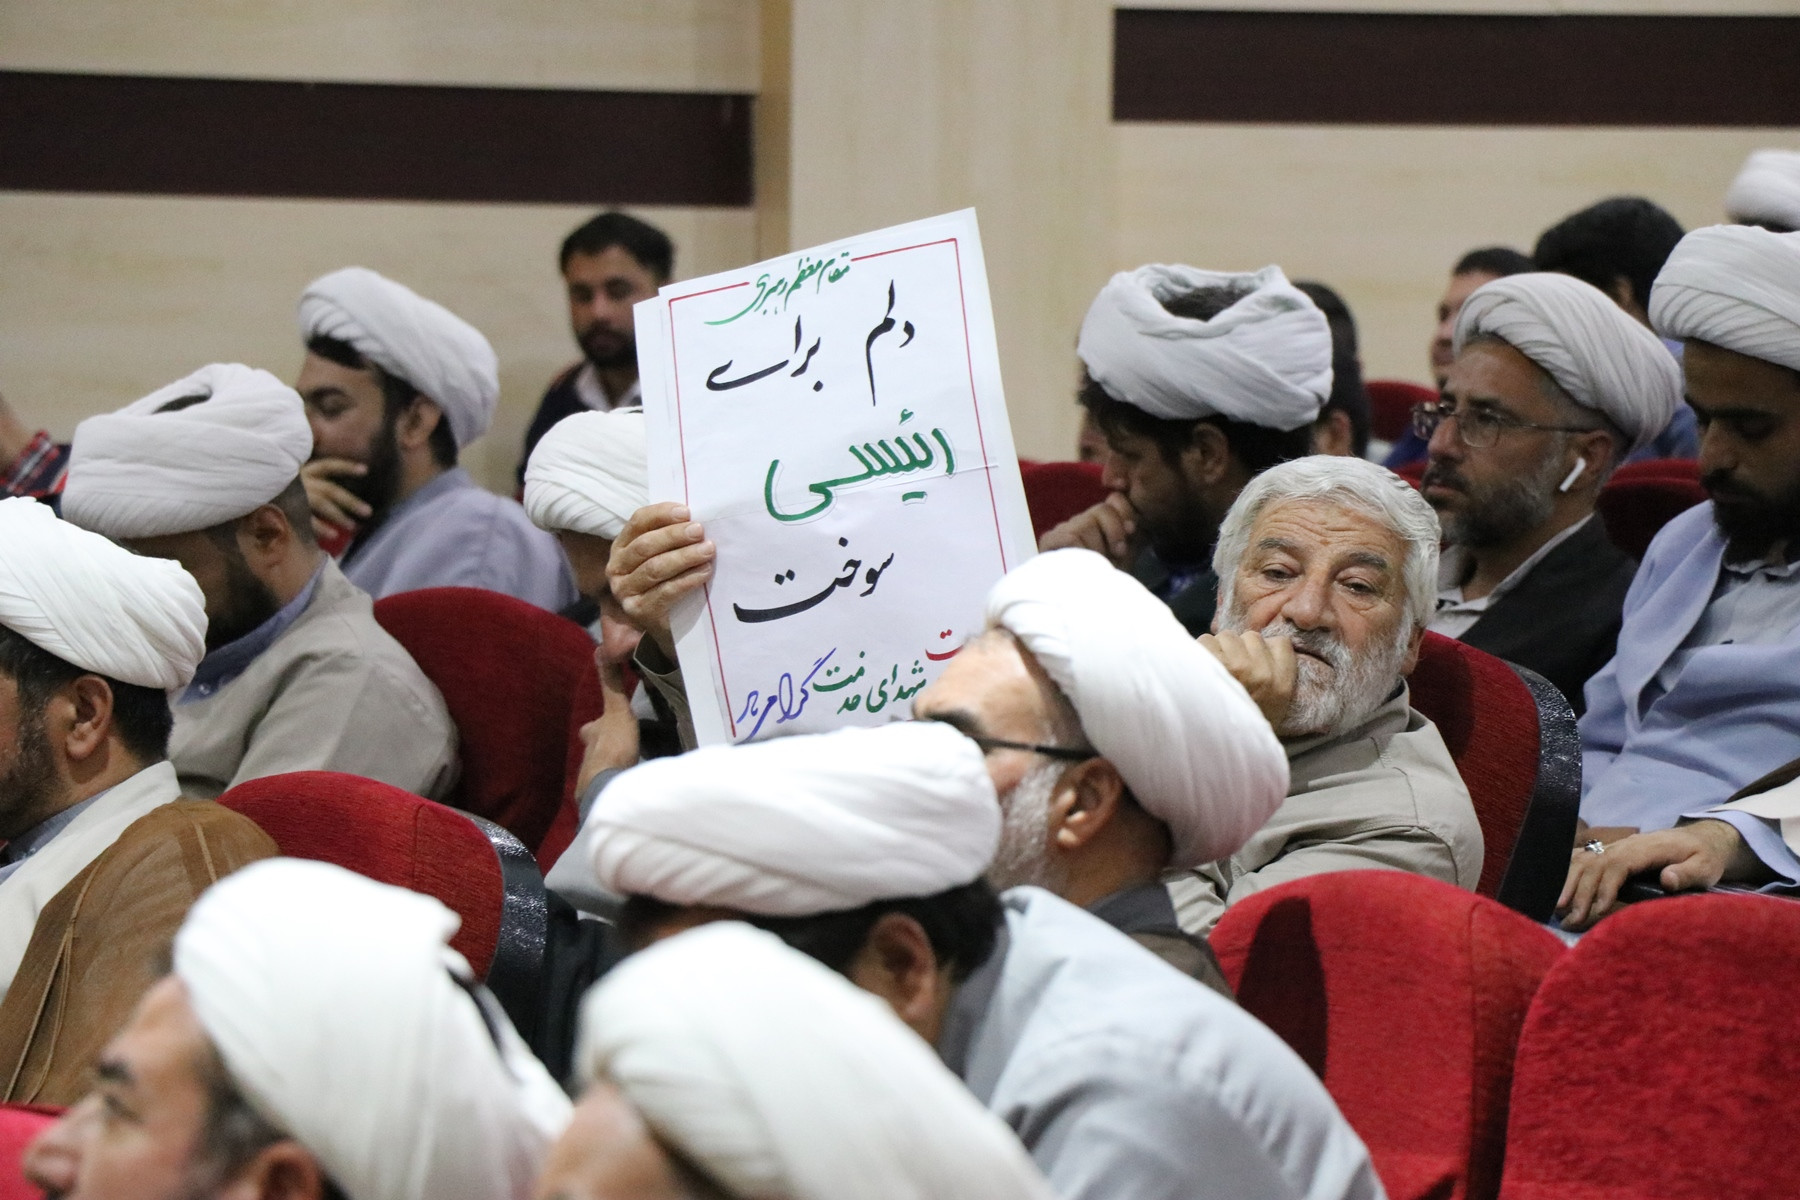 مقام معظم رهبری
دلم برای
رئیسی
سوخت
شهدای خدمت گرامی باد